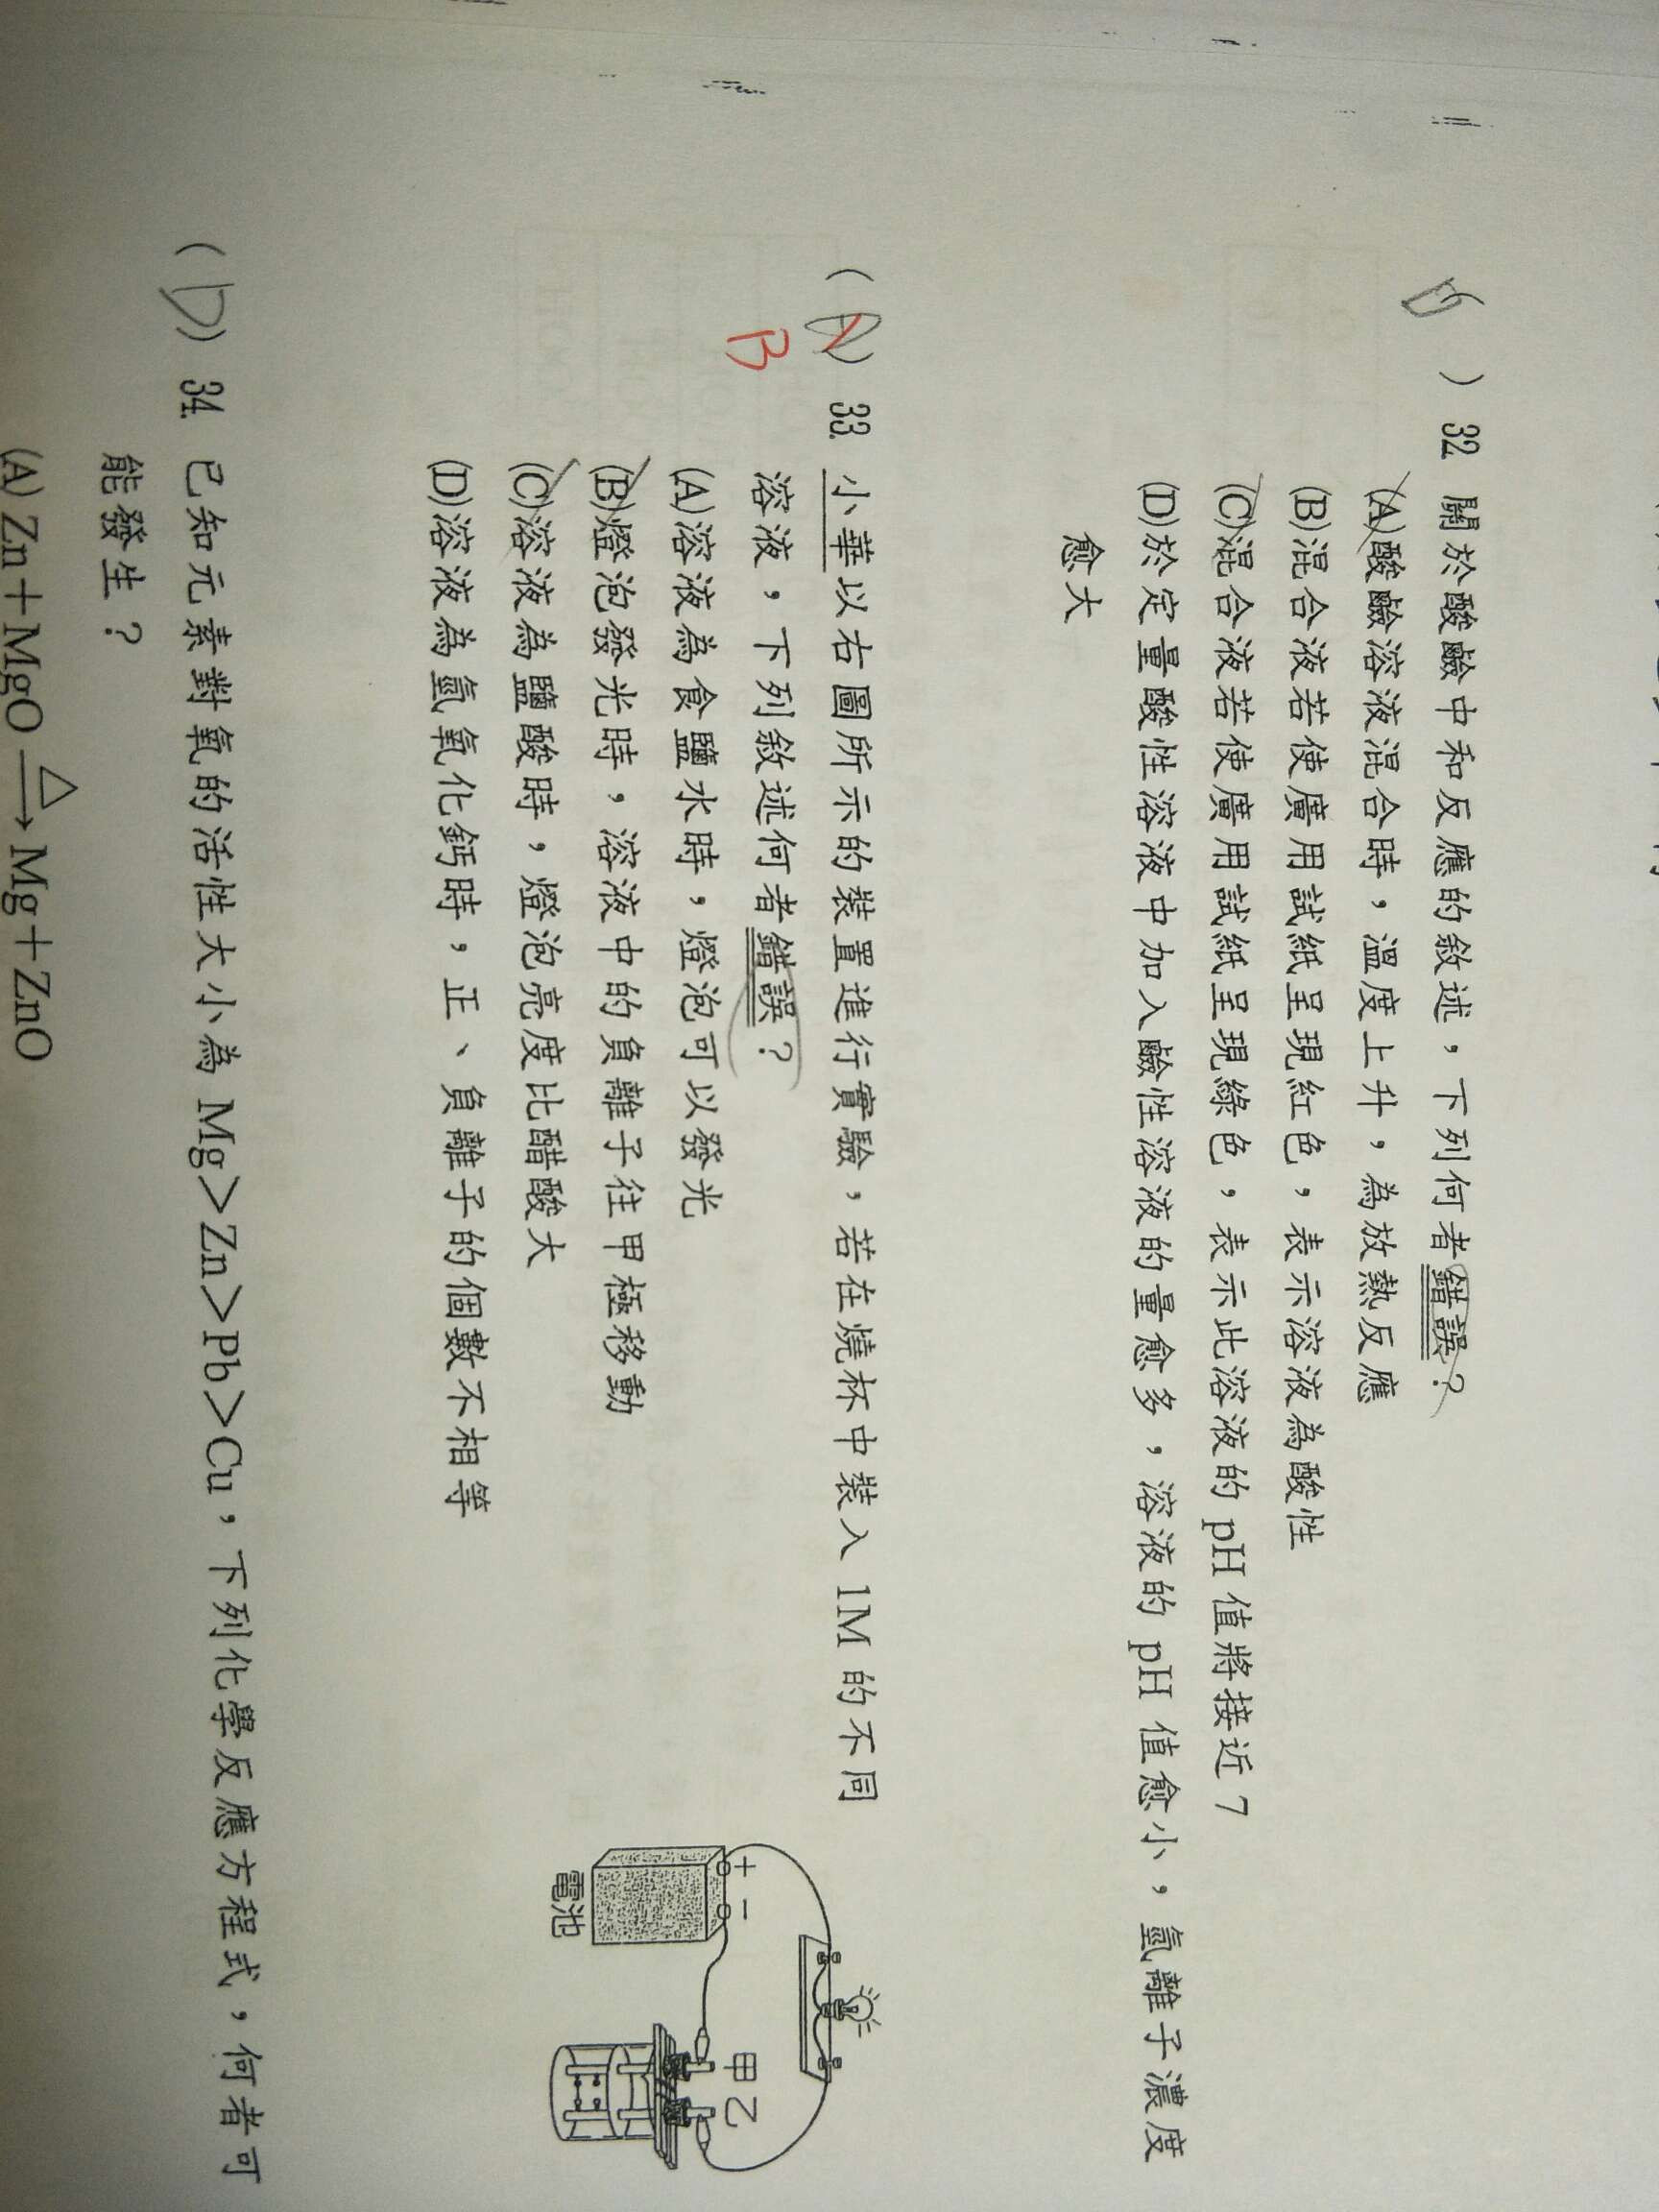 ) 32. 關於酸鹼中和反應的敘述，下列何者錯誤？
(A)酸鹼溶液混合時，溫度上升，為放熱反應
(B)混合液若使廣用試紙呈現紅色，表示溶液為酸性
(C)混合液若使廣用試紙呈現綠色，表示此溶液的 pH 值將接近 7
(D)於定量酸性溶液中加入鹼性溶液的量愈多，溶液的 pH 值愈小，氫離子濃度
愈大
( ) 33. 小華以右圖所示的裝置進行實驗，若在燒杯中裝入 1M 的不同
B
溶液，下列敘述何者錯誤？
(A)溶液為食鹽水時，燈泡可以發光
(B)燈泡發光時，溶液中的負離子往甲極移動
(C)溶液為鹽酸時，燈泡亮度比醋酸大
(D)溶液為氫氧化鈣時，正、負離子的個數不相等
+ −
電池
甲 乙
(D) 34. 已知元素對氧的活性大小為 Mg＞Zn＞Pb＞Cu，下列化學反應方程式，何者可
能發生？
(A) Zn＋MgO △→ Mg＋ZnO